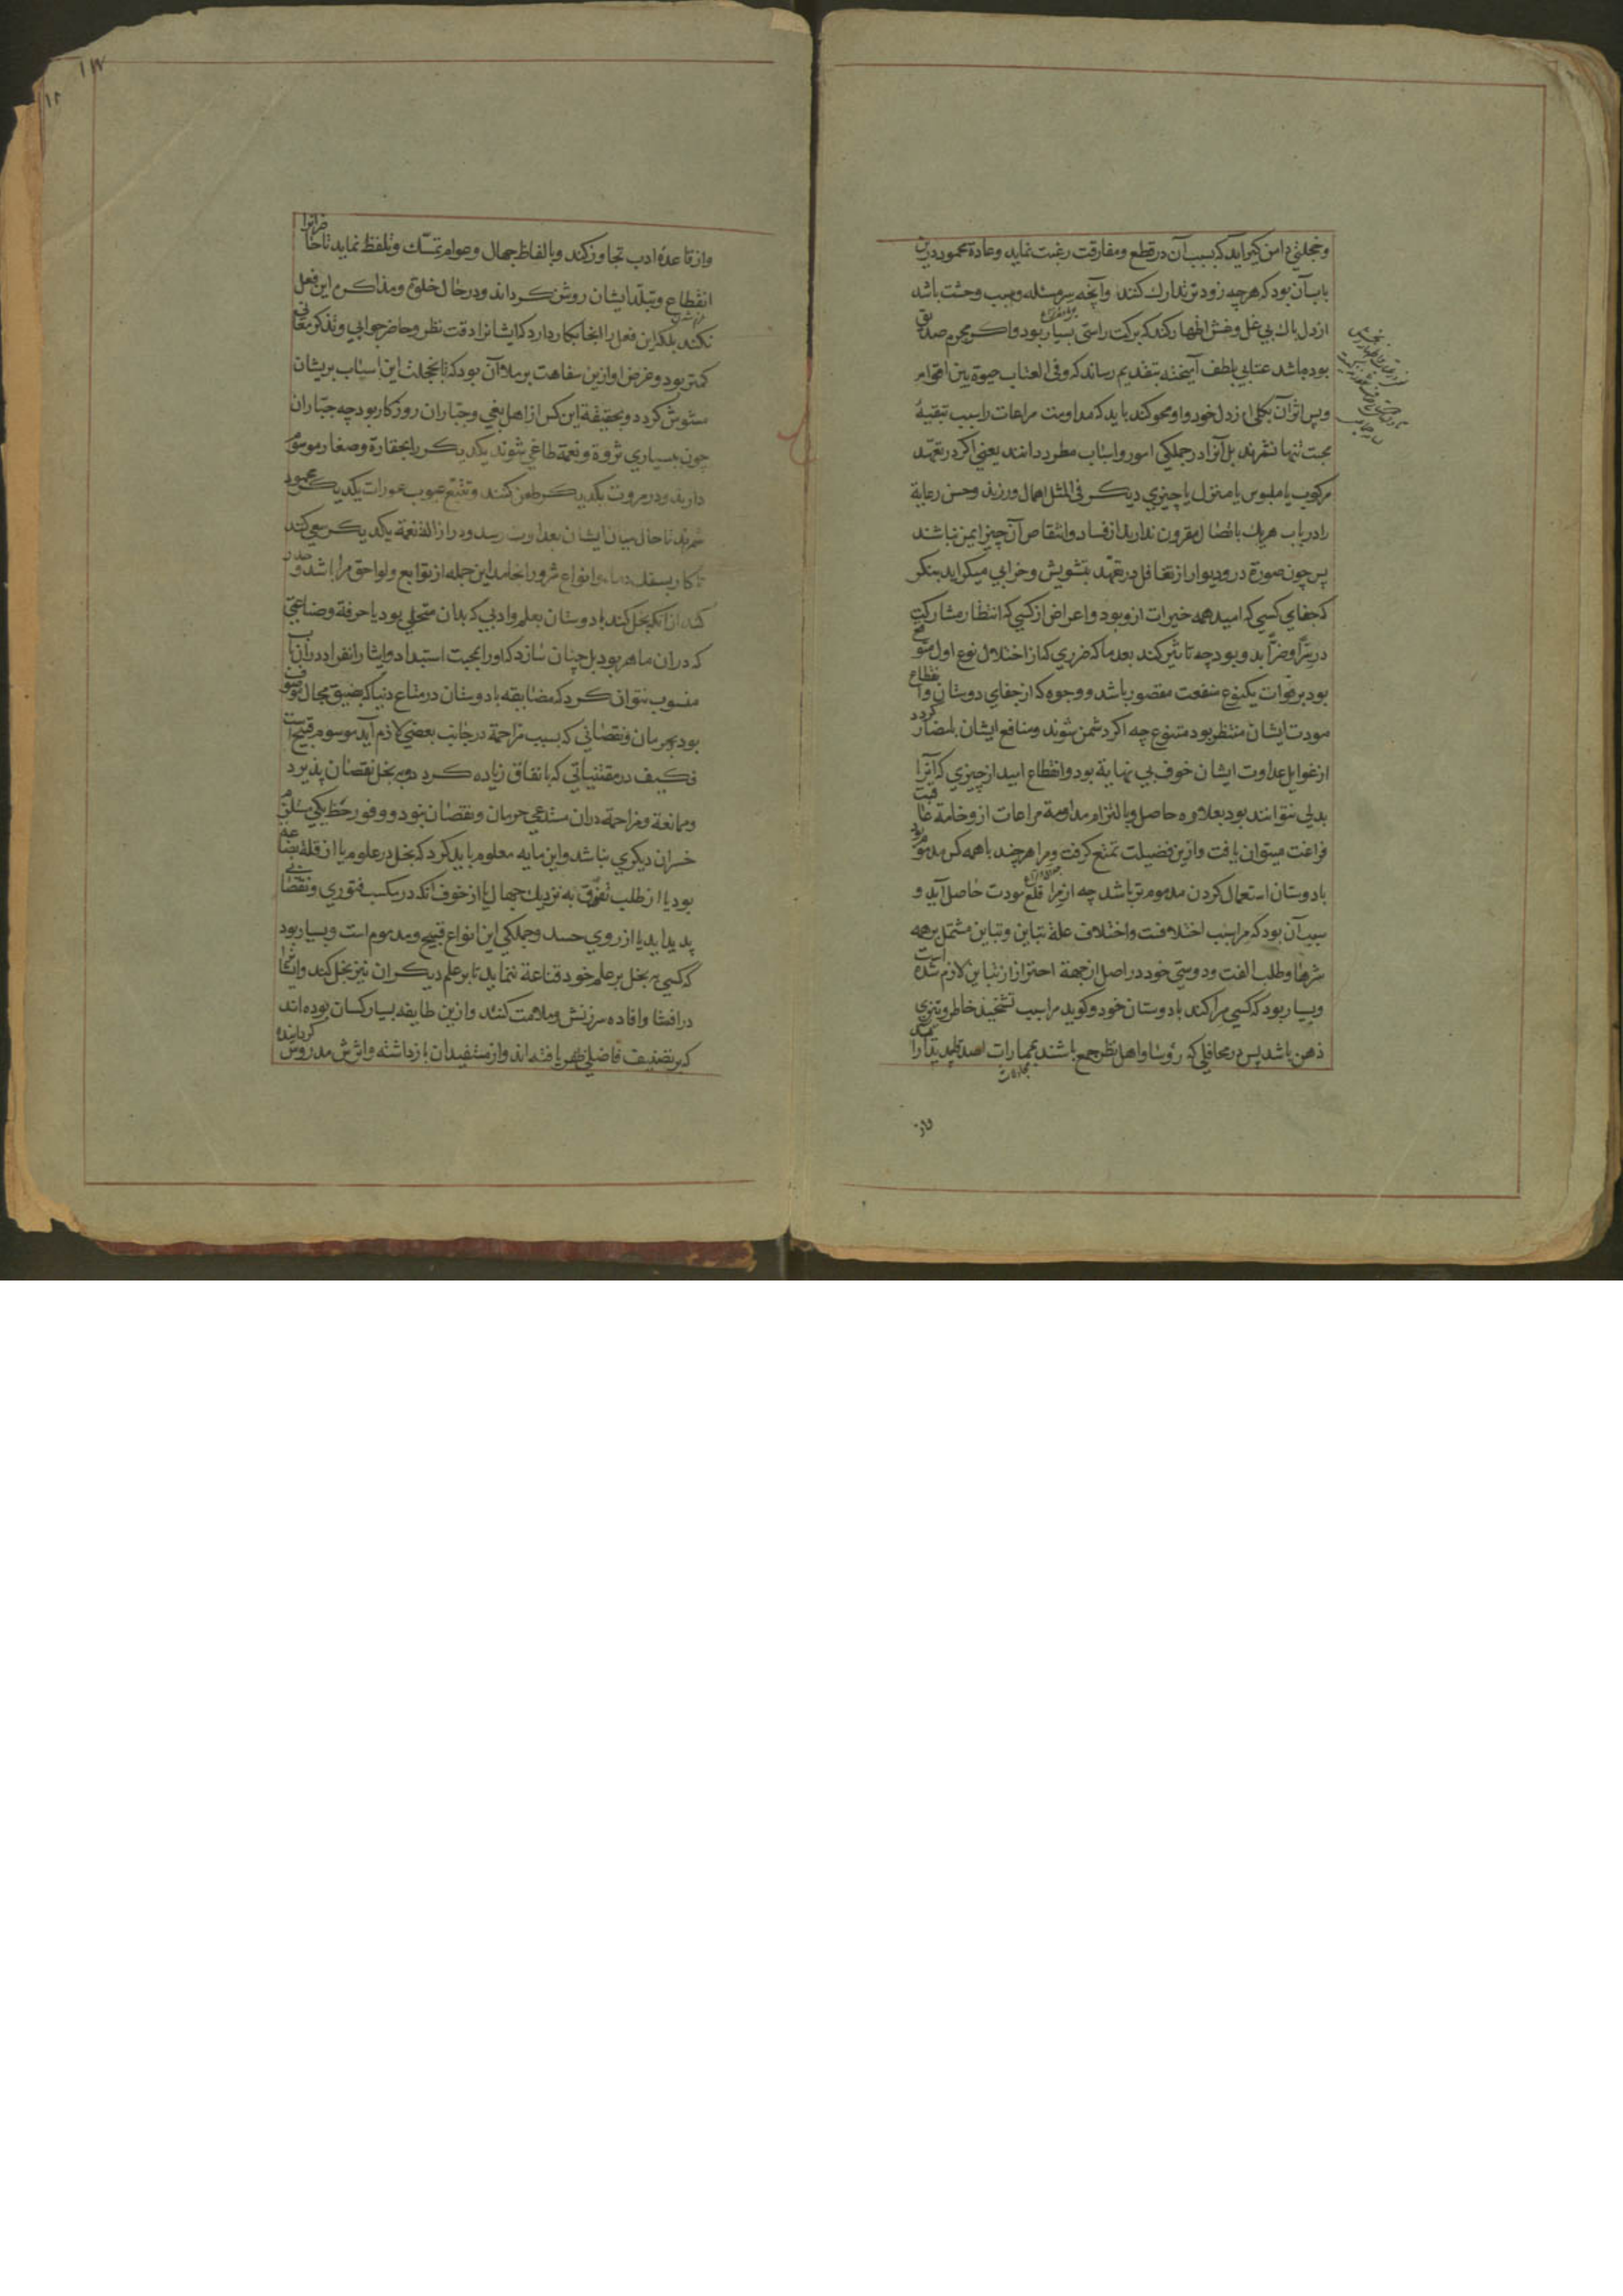 وخجلتی دامن گیر آید که بسبب آن در قطع ومفارقت رغبت نماید وعادة محمود درین
باب آن بود که هرچه زودتر تدارك کنند وآنچه سر مسئله وسبب وحشت باشد
از دل پاك بی غل وغش اظهار کند که برکت راستی بسیار بود واکر مجرم صدیق
بوده باشد عتابی بلطف آمیخته بتقدیم رساند که وفی العتاب حیوة بین اقوام
وپس اثر آن بکلی از دل خود واو محو کند باید که مداومت مراعات را سبب تبقیهٔ
محبت تنها نشمرند بل آنرا در جملکی امور واسباب مطرد دانند یعنی اکر در تعهد
مرکوب یا ملبوس یا منزل یا چیزی دیکر فی المثل اهمال ورزند وحسن رعایة
را در باب هریك باتصال مقرون ندارند از فساد وانتقاص آن چیز ایمن نباشند
پس چون صورة در ودیوار از تغافل در تعهد بتشویش وخرابی میکراید بنکر
که جفای کسی که امید همه خیرات ازو بود واعراض از کسی که انتظار مشارکت
در سرا وضرا بدو بود چه تاثیر کند بعد ما که ضرری که از اختلال نوع اول متوقع
بود بر فوات یکنوع منفعت مقصور باشد ووجوه که از جفای دوستان وانقطاع
مودت ایشان منتظر بود متنوع چه اکر دشمن شوند ومنافع ایشان بمضار کردد
از غوایل عداوت ایشان خوف بی نهایة بود وانقطاع امید از چیزی که آنرا
بدلی نتوانند بود بعلاوه حاصل وبالتزام مداومة مراعات از وخامة عاقبت
فراغت میتوان یافت وازین فضیلت تمتع کرفت ومرا هرچند با همه کس مذموم بود
با دوستان استعمال کردن مذموم تر باشد چه از مرا قلع مودت حاصل آید و
سبب آن بود که مرا سبب اختلافت واختلاف علة تباین وتباین مشتمل بر همه
شرها وطلب الفت ودوستی خود در اصل از جهة احتراز از تباین لازم شده است
وبسیار بود که کسی مرا کند با دوستان خود وکوید مرا سبب تشحیذ خاطر وتیزی
ذهن باشد پس در محافلی که رؤسا واهل نظر جمع باشند بممارات اصدقا
مجادلات
واز
وازقاعدهٔ ادب تجاوز کند وبالفاظ جهال وعوام تمسّك وتلفظ نماید تا حاضرانرا
انقطاع وتبلّد ایشان روشن کرداند ودر حال خلوة ومذاکره این فعل
نکند بلکه این فعل را انجا بکار دارد که ایشانرا دقت نظر وحاضر جوابی وتذکر معانی
کمتر بود وغرض او ازین سفاهت بر ملا آن بود که تا بخجلت این اسباب بریشان
مشوش کردد وبحقیقة این کس از اهل بغی وجبّاران روزکار بود چه جبّاران
چون ببسیاری ثروة ونعمة طاغی شوند یکدیکر را بحقارة وصغار موسوم
دارند ودر مروت یکدیکر طعن کنند وتتبع عیوب عورات یکدیکر محمود
شمرند تا حال میان ایشان بعداوت رسد ودر ازالة نعمة یکدیکر سعی کنند
تا کار بسفك دماء وانواع شرور انجامد این جمله از توابع ولواحق مرا باشد وحذر
کند از انکه بخل کند با دوستان بعلم وادبی که بدان متحلی بود یا حرفة وصناعتی
که دران ماهر بود بل چنان سازد که او را بمحبت استبداد وایثار انفراد دران باب
منسوب نتوان کرد که مضایقه با دوستان در متاع دنیا که بضیق مجال موصوف
بود بحرمان ونقصانی که بسبب مزاحمة در جانب بعضی لازم آید موسوم قبیح است
فکیف در مقتنیاتی که بانفاق زیاده کردد وببخل نقصان پذیرد
وممانعة ومزاحمة دران مستدعی حرمان ونقصان نبود ووفور حظ یکی مستلزم
خسران دیکری نباشد واین مایه معلوم باید کرد که بخل در علوم یا از قلة بضاعه
بود یا از طلب تفوق به نزدیك جهال یا از خوف آنکه در مکسب فتوری ونقصانی
پدید آید یا از روی حسد وجملکی این انواع قبیح ومذموم است وبسیار بود
که کسی ببخل بر علم خود قناعة ننماید تا بر علم دیکران نیز بخل کند وایشانرا
در افشا وافاده سرزنش وملامت کنند وازین طایفه بسیار کسان بوده اند
که بر تصنیف فاضلی ظهر یافته اند واز مستفیدان باز داشته واثرش مدروس کردانیده